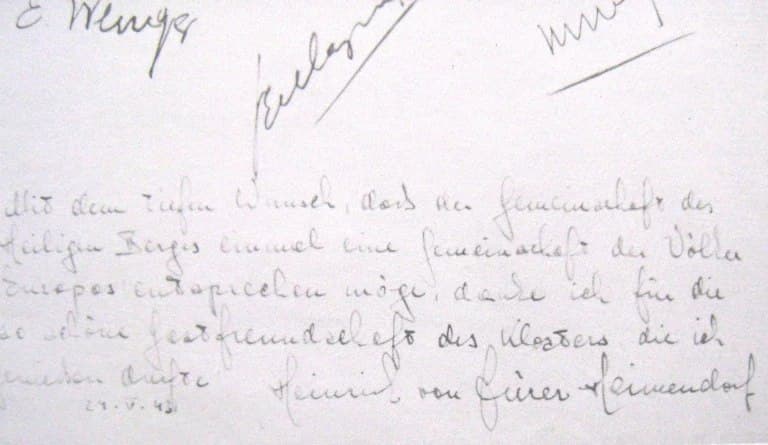 E. Weniger
Mit dem tiefen Wunsch, dass der Gemeinschaft des
Heiligen Berges einmal eine Gemeinschaft der Völker
Europas entsprechen möge, danke ich für die
so schöne Gastfreundschaft des Klosters die ich
genießen durfte
Heinrich von Fürer Haimendorf